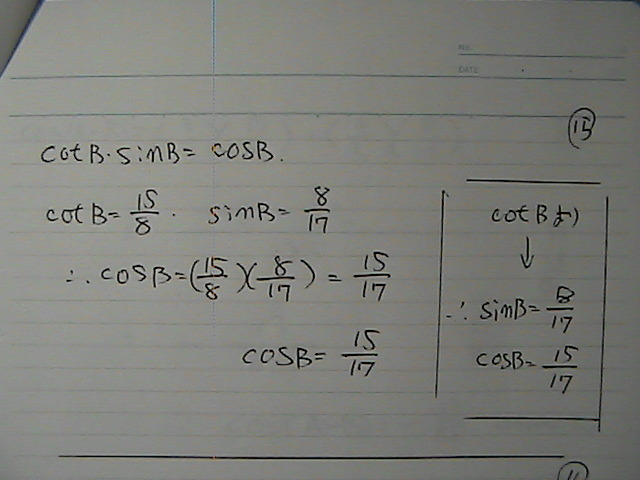 NO.
DATE
15
cotB・sinB = cosB.
cotB = 15/8 . sinB = 8/17
∴ cosB = (15/8)(8/17) = 15/17
cosB = 15/17
cotBより
↓
∴ sinB = 8/17
cosB = 15/17